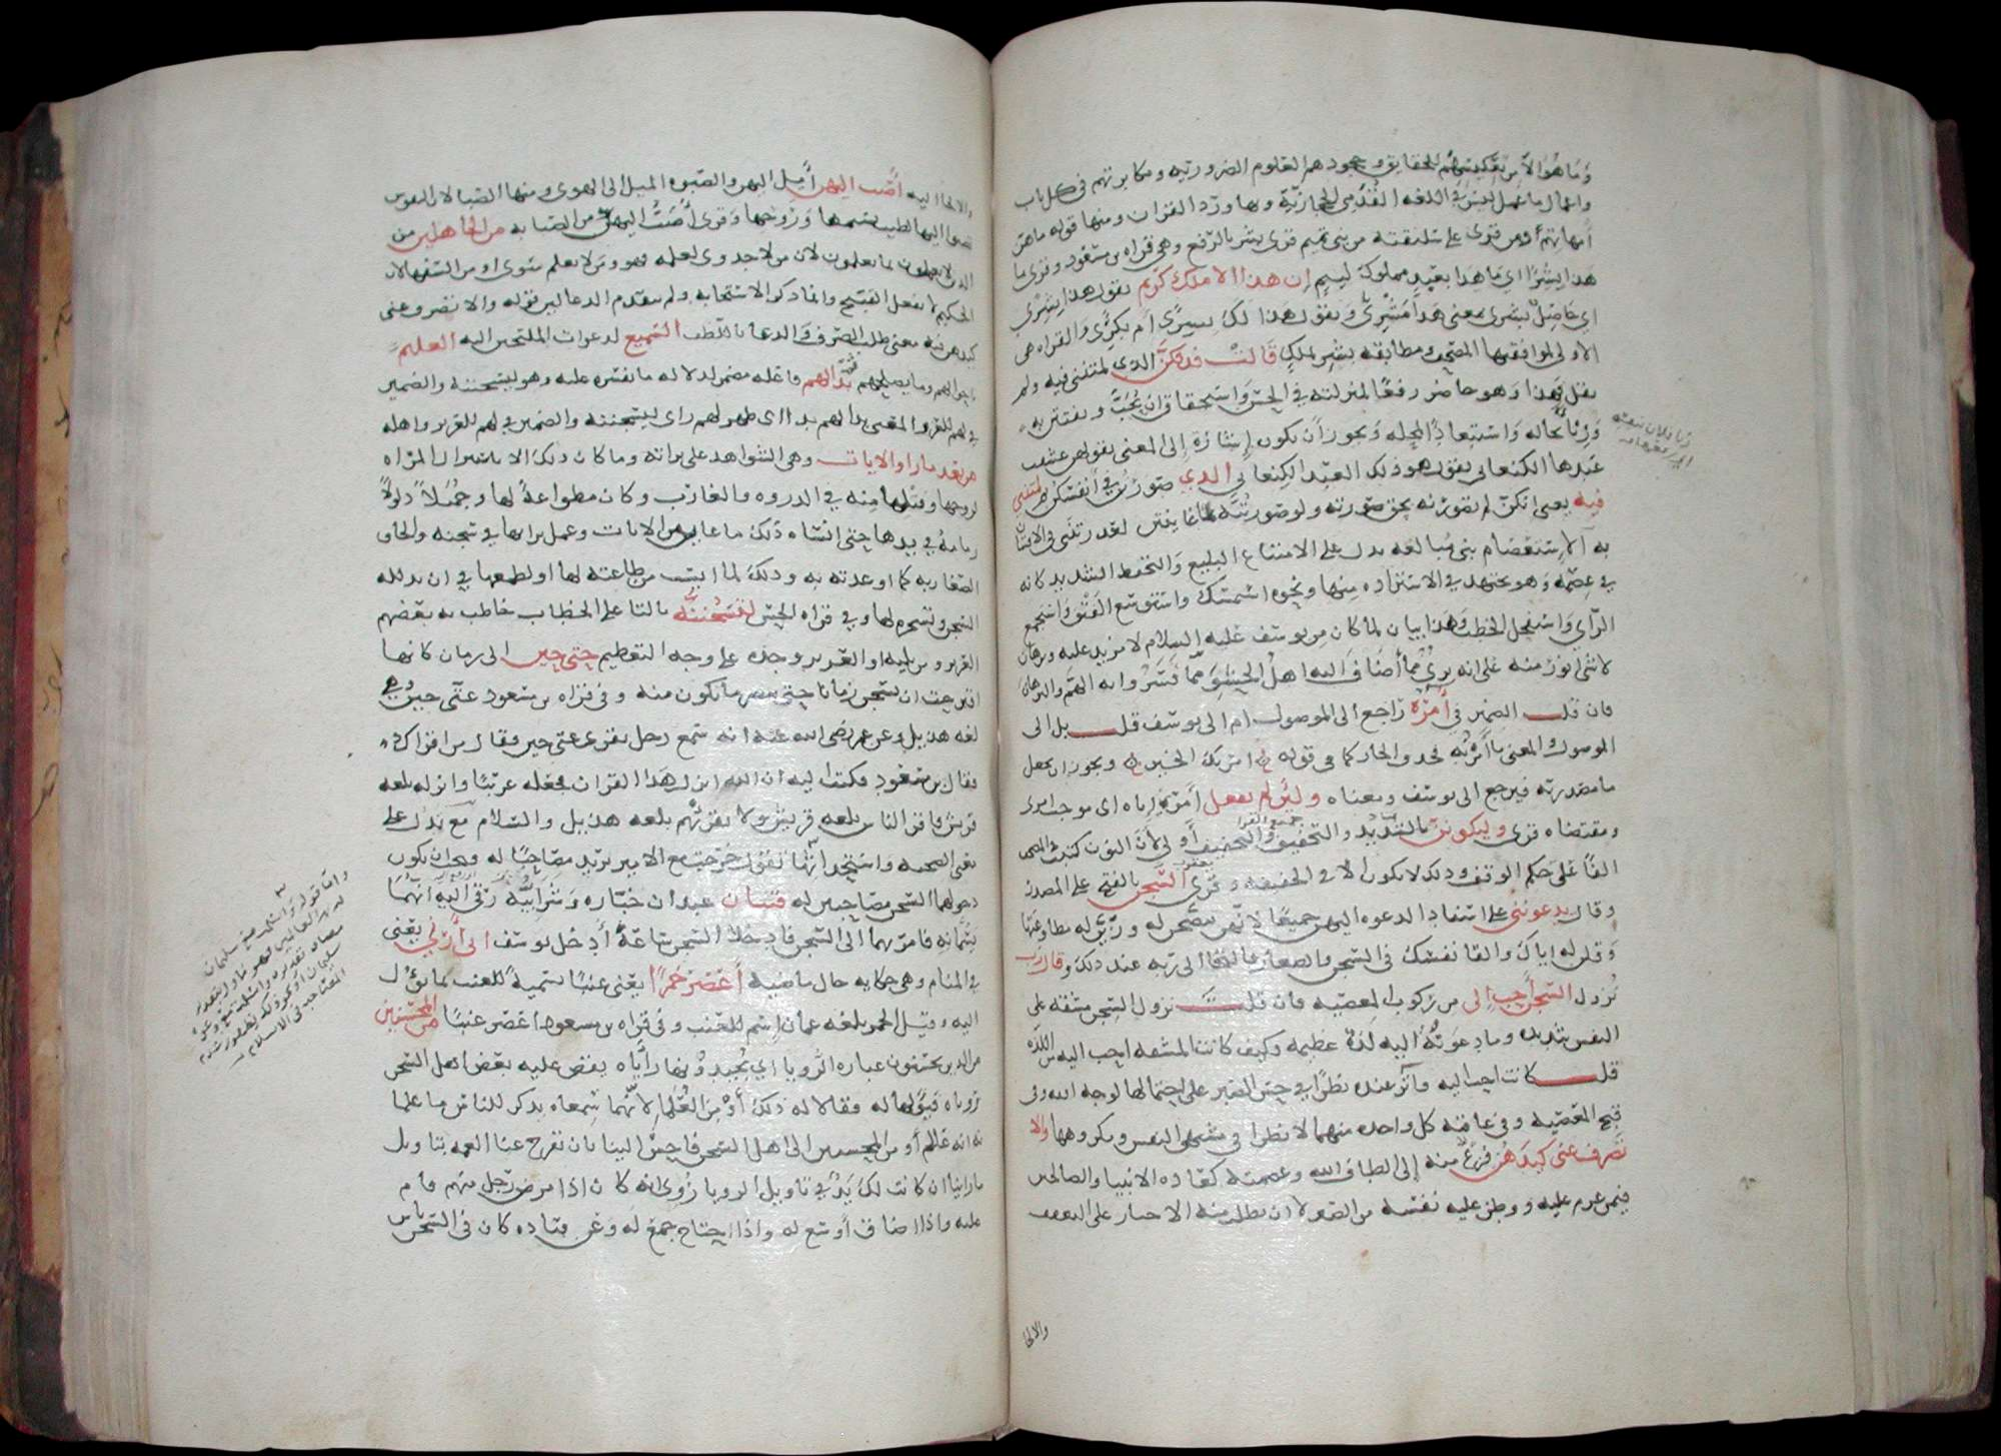 وما هو الا من تعكيسهم للحقايق وجحودهم للعلوم الضروريه ومكابرتهم فى كل باب
واعمال ما عمل ليس هى اللغه القدمى الحجازيّة وبها ورد القران ومنها قوله ما هن
أمهاتهم ومن قرى على سليقته من بنى تميم قرى بشر بالرفع وهى قراه بن مسعود وقرى ما
هذا بشرا اي ما هذا بعبد مملوك لييم إن هذا الا ملك كريم تقول هذا بشرى
اي حاصل بشرى بمعنى هذا مشرى وتقول هذا لك بشرى أم بكرى والقراه هى
الاولى لموافقتها المصحف ومطابقه بشر لملك قالت فذلكن الذى لمتننى فيه ولم
تقل فهذا وهو حاضر رفعا لمنزلته فى الحسن واستحقاق ان يحب ويفتتن به
وربا بحاله واستبعادا لمحله ويجوز أن يكون إشارة إلى المعنى بقولهن عشقت
عبدها الكنعانى تقول هو ذلك العبد الكنعانى الذي صورتن فى أنفسكن ثم لمتننى
فيه يعنى انكن لم تصورنه بحق صورته ولو صورتنه بما عاينتن لعذرتننى فى الافتتان
به الاستعصام بنى مبالغه يدل على الامتناع البليغ والتحفظ الشديد كانه
في عصمه وهو يجتهد فى الاستزاده منها ونحوه استمسك واستوسع الفتق واستجمع
الرأى واستفحل الخطب وهذا بيان لما كان من يوسف عليه السلام لا مزيد عليه وبرهان
لا شى انور منه على انه برى مما أضاف اليه اهل الحشو مما فسروا به الهم والبرهان
فان قلت الضمير فى أمره راجع الى الموصول ام الى يوسف قلت بل الى
الموصول والمعنى ما أمره به فحذف الجار كما فى قوله امرتك الخير ويجوز ان يجعل
ما مصدريه فيرجع الى يوسف ومعناه ولئن لم يفعل أمرى اياه اى موجب امرى
ومقتضاه قرى وليكونن بالتشديد والتخفيف والتخفيف أولى لأن النون كتبت فى المصحف
الفا على حكم الوقف وذلك لا يكون الا فى الخفيفه وقرى السجن بالفتح على المصدر
وقال يدعوننى على اسناد الدعوه اليهن جميعا لانهن تنصحن له وزين له مطاوعتها
وقلن له إياك والقا نفسك فى السجن والصغار فالتجا الى ربه عند ذلك وقال رب
نزول السجن أحب إلى من ركوب المعصيه فان قلت نزول السجن مشقه على
النفس شديده وما دعونه اليه لذة عظيمه وكيف كانت المشقه احب اليه من اللذه
قلت كانت احب اليه وآثر عنده نظرا فى حسن الصبر على احتمالها لوجه الله وفى
قبح المعصيه وفى عاقبه كل واحده منهما لا نظرا فى مشتهى النفس ومكروهها والا
تصرف عنى كيدهن فزع منه إلى الطاف الله وعصمته كعاده الانبيا والصالحين
فيمن عزم عليه ووطن عليه نفسه من الصبر لا ان يطلب منه الاجبار على التعفف
والالجا
والالجا اليه أصب اليهن أمل اليهن والصبوه الميل الى الهوى ومنها الصبا لان النفوس
تصبوا اليها لطيب نسيمها وروحها وقرى أصب اليهن من الصبابه من الجاهلين من
الذين لا يعملون بما يعلمون لان من لا جدوى لعلمه فهو ومن لا يعلم سوى او من السفها لان
الحكيم لا يفعل القبيح وانما ذكر الاستجابه ولم يتقدم الدعا لان قوله والا تصرف عنى
كيدهن فيه معنى طلب الصرف والدعا باللطف السميع لدعوات الملتجين اليه العليم
باحوالهم وما يصلحهم ثم بدا لهم فاعله مضمر لدلاله ما يفسره عليه وهو ليسجننه والمعنى
بدا لهم بداء اى ظهر لهم راى ليسجننه والضمير في لهم للعزيز واهله
من بعد ما راوا الايات وهى الشواهد على براته وما كان ذلك الا باستنزال المراه
لزوجها وفتلها منه فى الذروه والغارب وكان مطواعة لها وجملا ذلولا
زمامه في يدها حتى انساه ذلك ما عاين من الايات وعمل برايها في سجنه والحاق
الصغار به كما اوعدته به وذلك لما ايست من طاعته لها او لطمعها فى ان يذلله
السجن ويسخره لها وفى قراه الحسن لتسجننه بالتا على الخطاب خاطب به بعضهم
العزيز ومن يليه او العزيز وحده على وجه التعظيم حتى حين الى زمان كانها
اقترحت ان يسجن زمانا حتى تبصر ما يكون منه وفى قراه بن مسعود عتى حين وهى
لغه هذيل وعن عمر رضى الله عنه انه سمع رجلا يقرى عتى حين فقال من اقراك
فقال بن مسعود فكتب اليه ان الله انزل هذا القران فجعله عربيا وانزله بلغه
قريش فاقرِ الناس بلغه قريش ولا تقرئهم بلغه هذيل والسلام مع يدل على
معنى الصحبه واستحداثها تقول خرجت مع الامير تريد مصاحبا له فيجب ان يكون
دخولهما السجن مصاحبين له فتيان عبدان خبازه وشرابيه رقى اليه انهما
يسمانه فامر بهما الى السجن فادخلا السجن ساعة أدخل يوسف انى أرانى يعنى
في المنام وهى حكايه حال ماضيه أعصر خمرا يعنى عنبا تسمية للعنب بما يؤل
اليه وقيل الخمر بلغه عمان إسم للعنب وفى قراه بن مسعود أعصر عنبا من المحسنين
من الذين يحسنون عباره الرويا اي يجيدونها راياه يقص عليه بعض اهل السجن
روياه فيولها له فقالا له ذلك أو من العلما لانهما سمعاه يذكر للناس ما علما
به انه عالم أو من المحسنين الى اهل السجن فاحسن الينا بان تفرج عنا الغمه بتاويل
ما راينا ان كانت لك يد في تاويل الرويا روى انه كان اذا مرض رجل منهم قام
عليه واذا اضاق أوسع له واذا احتاج جمع له وعن قتاده كان فى السجن ناس